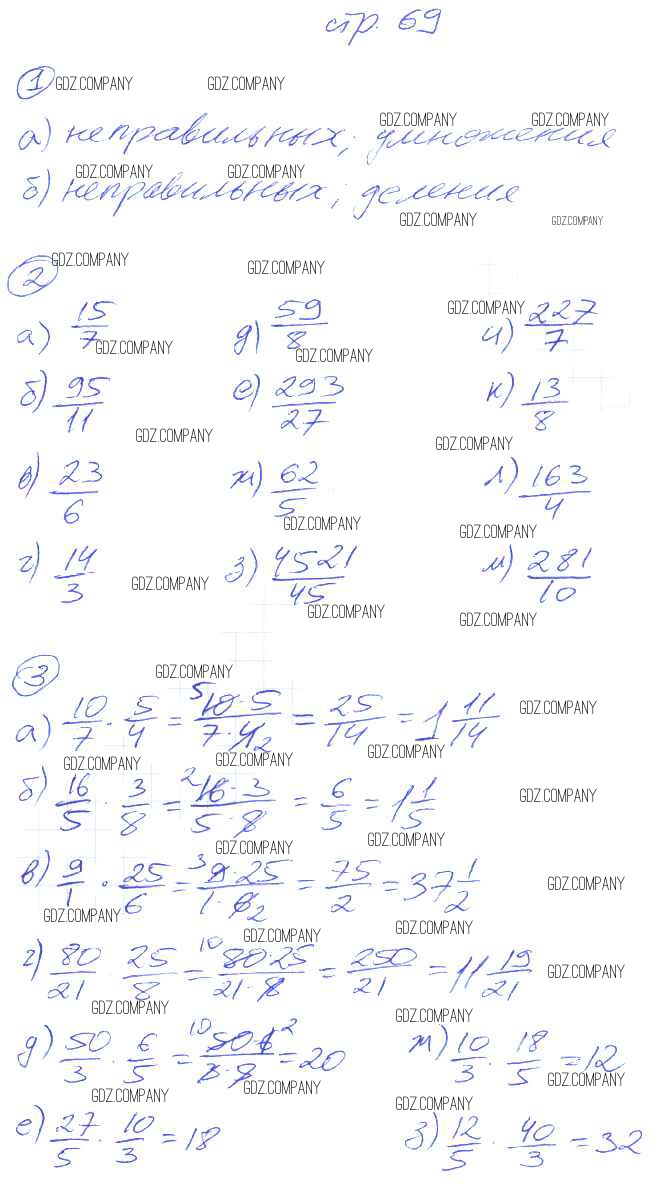 стр. 69
1 GDZ.COMPANY GDZ.COMPANY
GDZ.COMPANY GDZ.COMPANY
а) неправильных; умножения
GDZ.COMPANY GDZ.COMPANY
б) неправильных; деления
GDZ.COMPANY GDZ.COMPANY
2 GDZ.COMPANY GDZ.COMPANY
а) 15/7 д) 59/8 и) 227/7
GDZ.COMPANY GDZ.COMPANY GDZ.COMPANY
б) 95/11 е) 293/27 к) 13/8
GDZ.COMPANY GDZ.COMPANY
в) 23/6 ж) 62/5 л) 163/4
GDZ.COMPANY GDZ.COMPANY
г) 14/3 з) 4521/45 м) 281/10
GDZ.COMPANY GDZ.COMPANY GDZ.COMPANY
3 GDZ.COMPANY
а) 10/7 · 5/4 = 5 10·5/7·4 2 = 25/14 = 1 11/14 GDZ.COMPANY
GDZ.COMPANY GDZ.COMPANY GDZ.COMPANY
б) 16/5 · 3/8 = 2 16·3/5·8 = 6/5 = 1 1/5 GDZ.COMPANY
GDZ.COMPANY GDZ.COMPANY
в) 9/1 · 25/6 = 3 9·25/1·6 2 = 75/2 = 37 1/2 GDZ.COMPANY
GDZ.COMPANY GDZ.COMPANY GDZ.COMPANY
г) 80/21 · 25/8 = 10 80·25/21·8 = 250/21 = 11 19/21 GDZ.COMPANY
GDZ.COMPANY GDZ.COMPANY
д) 50/3 · 6/5 = 10 50·6 2/3·5 = 20 ж) 10/3 · 18/5 = 12
GDZ.COMPANY GDZ.COMPANY GDZ.COMPANY GDZ.COMPANY
е) 27/5 · 10/3 = 18 з) 12/5 · 40/3 = 32